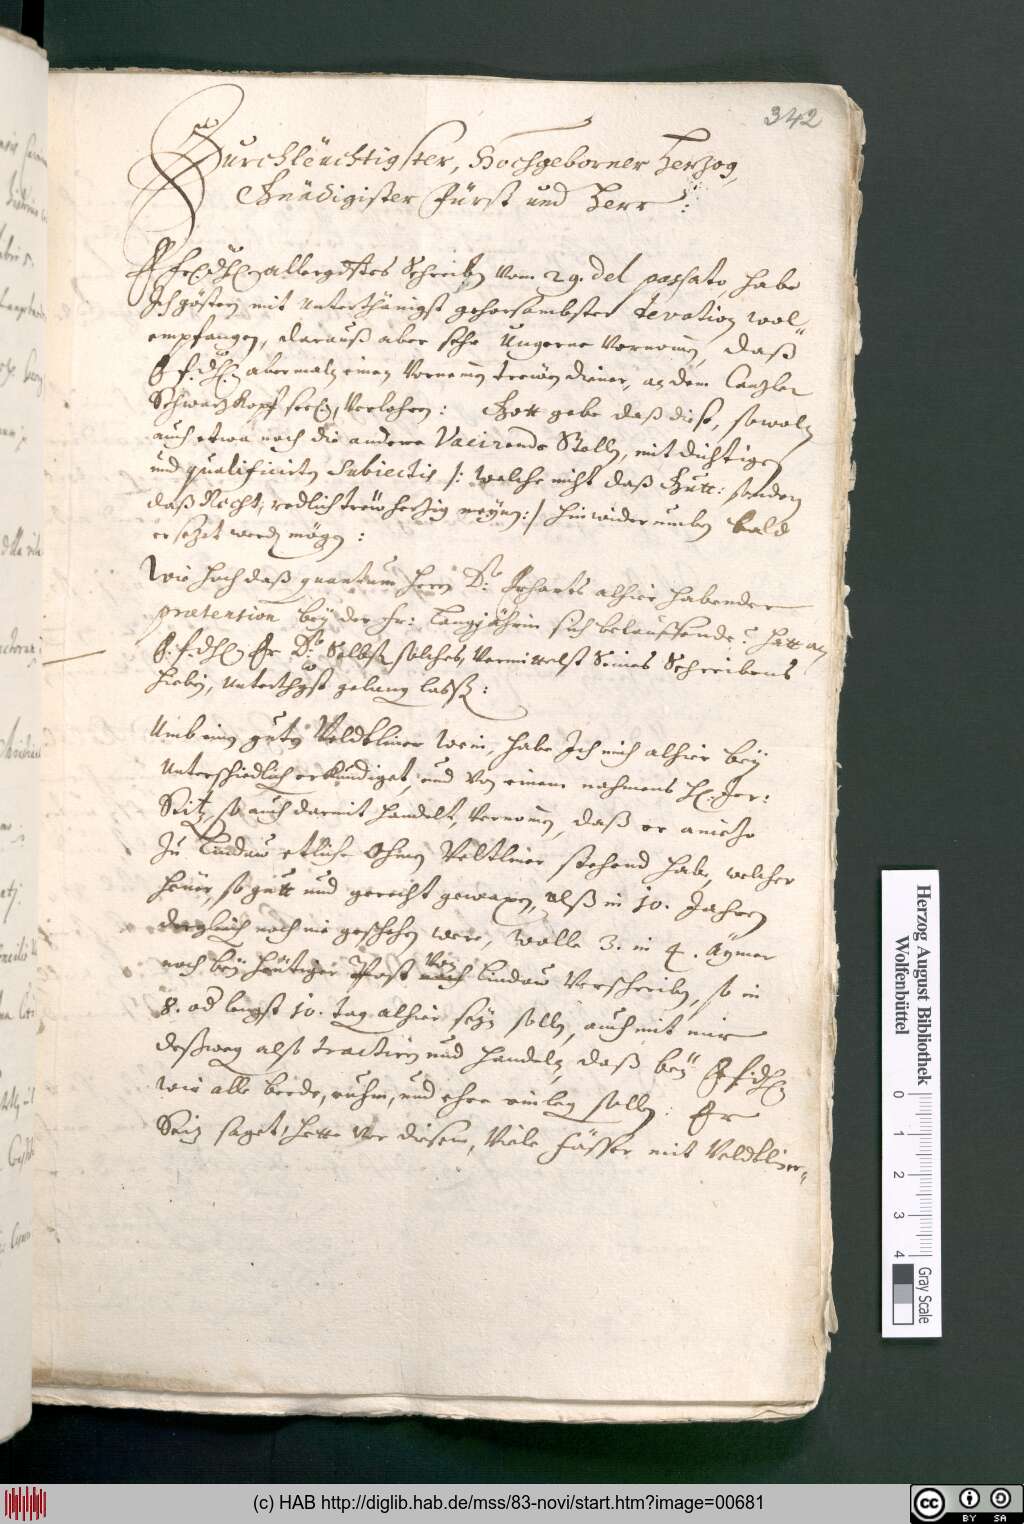 342
Durchleüchtigster, Hochgeborner Herzog,
Gnädigister Fürst und Herr :
E. frl. dhl. allergdstes Schreiben vom 29. del passato, habe
Ich gestern mit unterthänigst gehorsambster devotion wol
empfangen, darauß aber sehr Ungerne vernomen, daß
E. f. dhl. abermalß einen vornemen trewen diener, an dem Canzler
Schwarzkopf seel., verlohren : Gott gebe daß diese, sowoln
auch etwa noch die andere Vacirende Stelle, mit dichtigen
und qualificirten Subiectis /: welche nicht daß Gutt: sonder
daß Recht, redlich trewhertzig meynen :/ hinwiderumben bald
ersezet werden mögen :
Wie hoch daß quantum herrn Dr. Erharts alhier habender
prætention bey der fr: Langjährin sich belauffende, hatt an
E. f. dhl. Er Dr. Selbst solches, vermittelst Seines Schreibens
hiebey, unterthgst gelang lassen :
Umb einen guten Veldtliner Wein, habe Ich mich alhier bey
Unterschiedlich erkundiget, und von einem nahmens H. Jer:
Seitz, so auch darmit handelt, vernomen, daß er aniezo
Zu Lindaw etliche Ohmen Veltliner stehend hab, welcher
heüer, so gutt und gerecht gewaxen, alß in 10. Jahren
dergleich noch nie geschehen were, wolle 3. in 4. Aymer
noch bey heütiger Post von Lindaw verschreiben, so in
8. od lengst 10. tag alhier seyn solle, auch mit mir
deßweg also tractiren und handeln, daß bey E. f. dhl.
wir alle beede, ruhm, und ehre einleg sollen : Er
Seitz saget, hette vor diesem, Viele Fässer mit Veldtliner-
Herzog August Bibliothek
Wolfenbüttel
0 1 2 3 4
Gray Scale
(c) HAB http://diglib.hab.de/mss/83-novi/start.htm?image=00681
cc BY SA